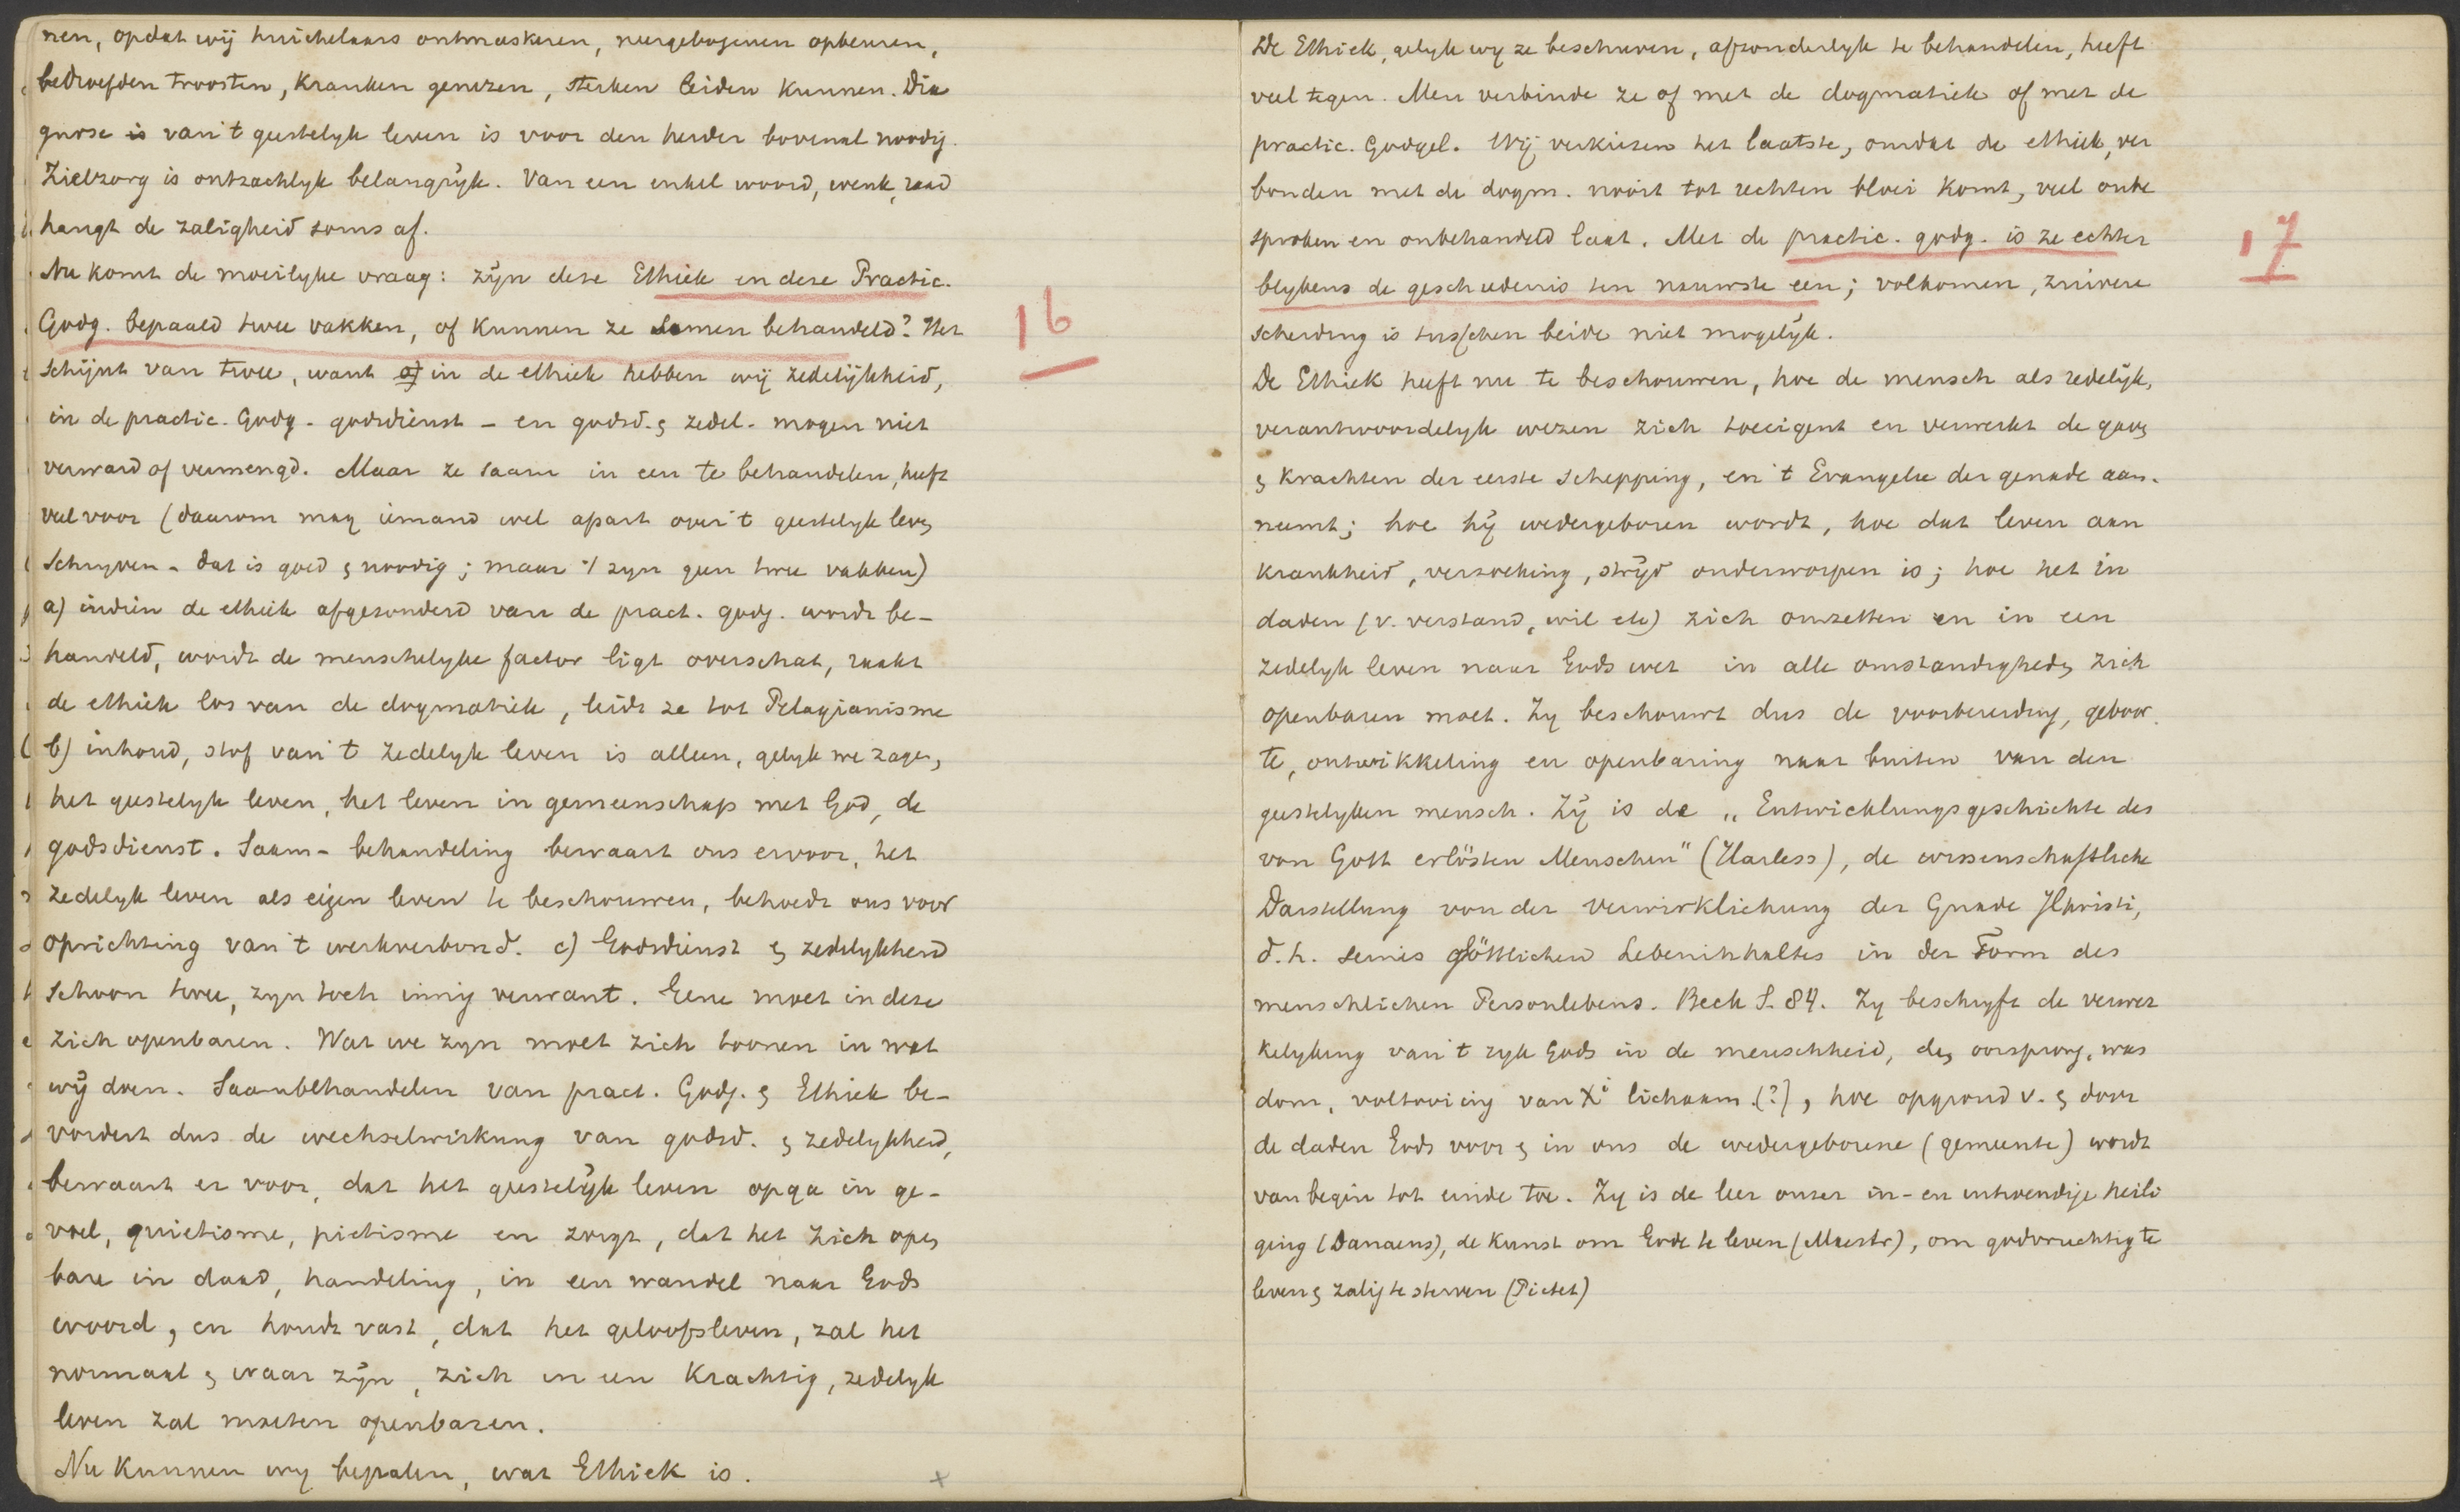 nen, opdat wij huichelaars ontmaskeren, neergebogenen opbeuren,
bedroefden troosten, kranken genezen, sterken leiden kunnen. Dia
gnose is van 't geestelyk leven is voor den herder bovenal noodig.
Zielzorg is ontzachlyk belangrijk. Van een enkel woord, wenk, raad
hangt de zaligheid soms af.
Nu komt de moeilyke vraag: zijn deze Ethiek en deze Practic.
Godg. bepaald twee vakken, of kunnen ze samen behandeld? Het
schijnt van twee, want a) in de ethiek hebben wij zedelijkheid,
in de practic. Godg. godsdienst – en godsd. & zedel. mogen niet
verward of vermengd. Maar ze saam in een te behandelen, heeft
veel voor (daarom mag iemand wel apart over 't geestelyk leven
schryven – dat is goed & noodig; maar 't zyn geen twee vakken)
a) indien de ethiek afgezonderd van de pract. godg. wordt be-
handeld, wordt de menschelyke factor ligt overschat, raakt
de ethiek los van de dogmatiek, leidt ze tot Pelagianisme
b) inhoud, stof van 't zedelyk leven is alleen, gelyk we zagen,
het geestelyk leven, het leven in gemeenschap met God, de
godsdienst. Saam-behandeling bewaart ons ervoor, het
zedelyk leven als eigen leven te beschouwen, behoedt ons voor
oprichting van 't werkverbond. c) Godsdienst & zedelykheid
schoon twee, zyn toch innig verwant. Gene moet in deze
zich openbaren. Wat we zyn moet zich toonen in wat
wij doen. Saambehandelen van pract. Godg. & Ethiek be-
vordert dus de wechselwirkung van godsd. & zedelykheid,
bewaart er voor, dat het geestelijk leven opga in ge-
voel, quietisme, pietisme en zorgt, dat het zich open
bare in daad, handeling, in een wandel naar Gods
woord, en houdt vast, dat het geloofsleven, zal het
normaal & waar zijn, zich in een krachtig, zedelyk
leven zal moeten openbaren.
Nu kunnen wy bepalen, wat Ethiek is.
16
De Ethiek, gelyk wy ze beschreven, afzonderlyk te behandelen, heeft
veel tegen. Men verbinde ze of met de dogmatiek of met de
practic. Godgel. Wij verkiezen het laatste, omdat de ethiek, ver
bonden met de dogm. nooit tot rechten bloei komt, veel onbe
sproken en onbehandeld laat. Met de practic. godg. is ze echter
blykens de geschiedenis ten nauwste een; volkomen, zuivere
scheiding is tusschen beide niet mogelijk.
De Ethiek heeft nu te beschouwen, hoe de mensch als redelijk,
verantwoordelyk wezen zich toeeigent en verwerkt de gaven
& krachten der eerste schepping, en 't Evangelie der genade aan-
neemt; hoe hij wedergeboren wordt, hoe dat leven aan
krankheid, verzoeking, strijd onderworpen is; hoe het in
daden (v. verstand, wil etc) zich omzetten en in een
zedelyk leven naar Gods wet in alle omstandigheden zich
openbaren moet. Zy beschouwt dus de voorbereiding, geboor
te, ontwikkeling en openbaring naar buiten van den
geestelyken mensch. Zij is de „Entwicklungsgeschichte des
von Gott erlösten Menschen" (Harless), de wissenschaftliche
Darstellung von der Verwirklichung der Gnade JChristi,
d. h. seines göttlichen Lebeninhaltes in der Form des
menschlichen Personlebens. Beck S. 84. Zy beschryft de verwer
kelyking van 't ryk Gods in de menschheid, den oorsprong, was
dom, voltooiing van Xi lichaam (?), hoe opgrond v. & door
de daden Gods voor & in ons de wedergeborene (gemeente) wordt
van begin tot einde toe. Zy is de leer onzer in- en uitwendige heili
ging (Danaeus), de kunst om Gode te leven (Maestr), om godvruchtig te
leven & zalig te sterven (Pictet)
17